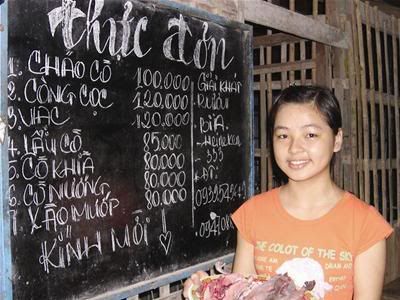 thực đơn
1. CHÁO CÒ 100.000
2. CÔNG CỌC 120.000
3. VẠC 120.000
4. LẨU CÒ 85.000
5. CÒ KHÌA 80.000
6. CÒ NƯỚNG 80.000
7. XÀO MƯỚP 80.000
KÍNH MỜI !
GIẢI KHÁT
RƯỢU
BIA
- HEINEKEN
- 333
ĐT:
THE COLOT OF THE SKY